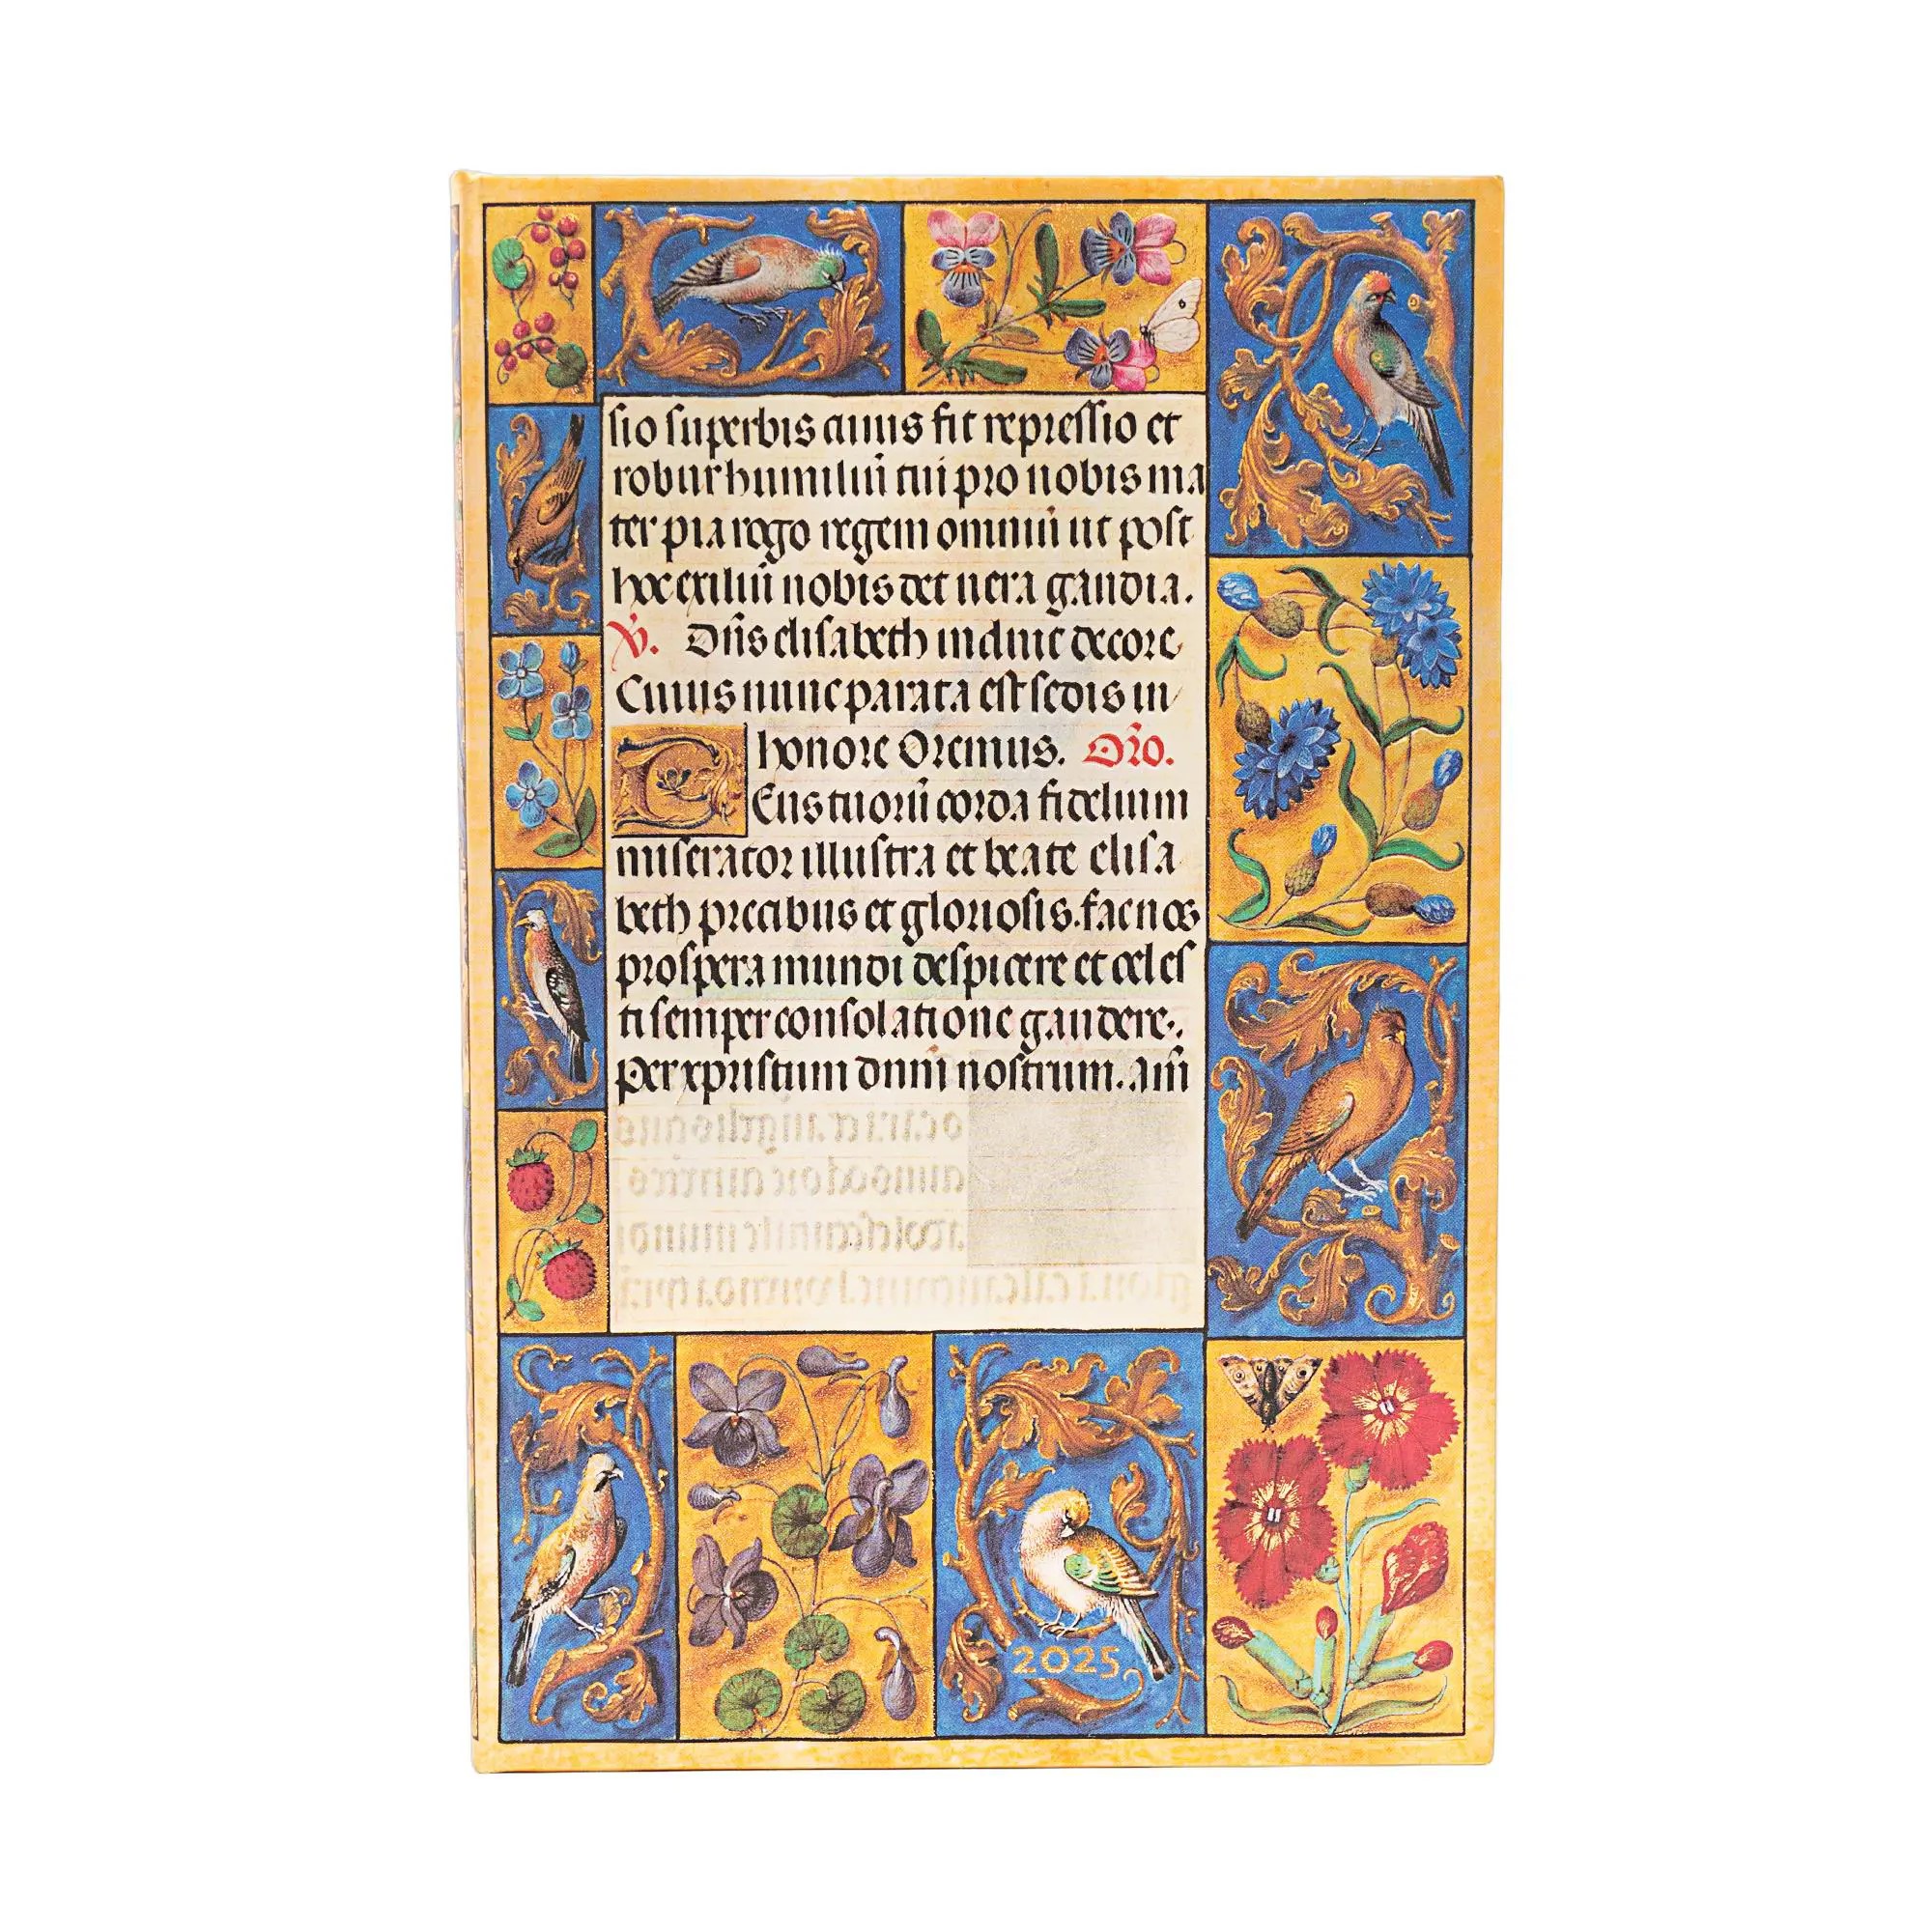 sio superbis cuius fit repressio et
robur humiliū tui pro nobis ma
ter pia rogo regem omniū ut post
hoc exiliū nobis det uera gaudia.
V̄. Dn̄s elisabeth induit decore
Cuius nunc parata est sedis in
honore Oremus. Or̄o.
DEus tuorū corda fidelium
miserator illustra et beate elisa
beth precibus et gloriosis. fac nos
prospera mundi despicere et celes
ti semper consolatione gaudere.
Per xpristum dnm̄ nostrum. am̄
2025